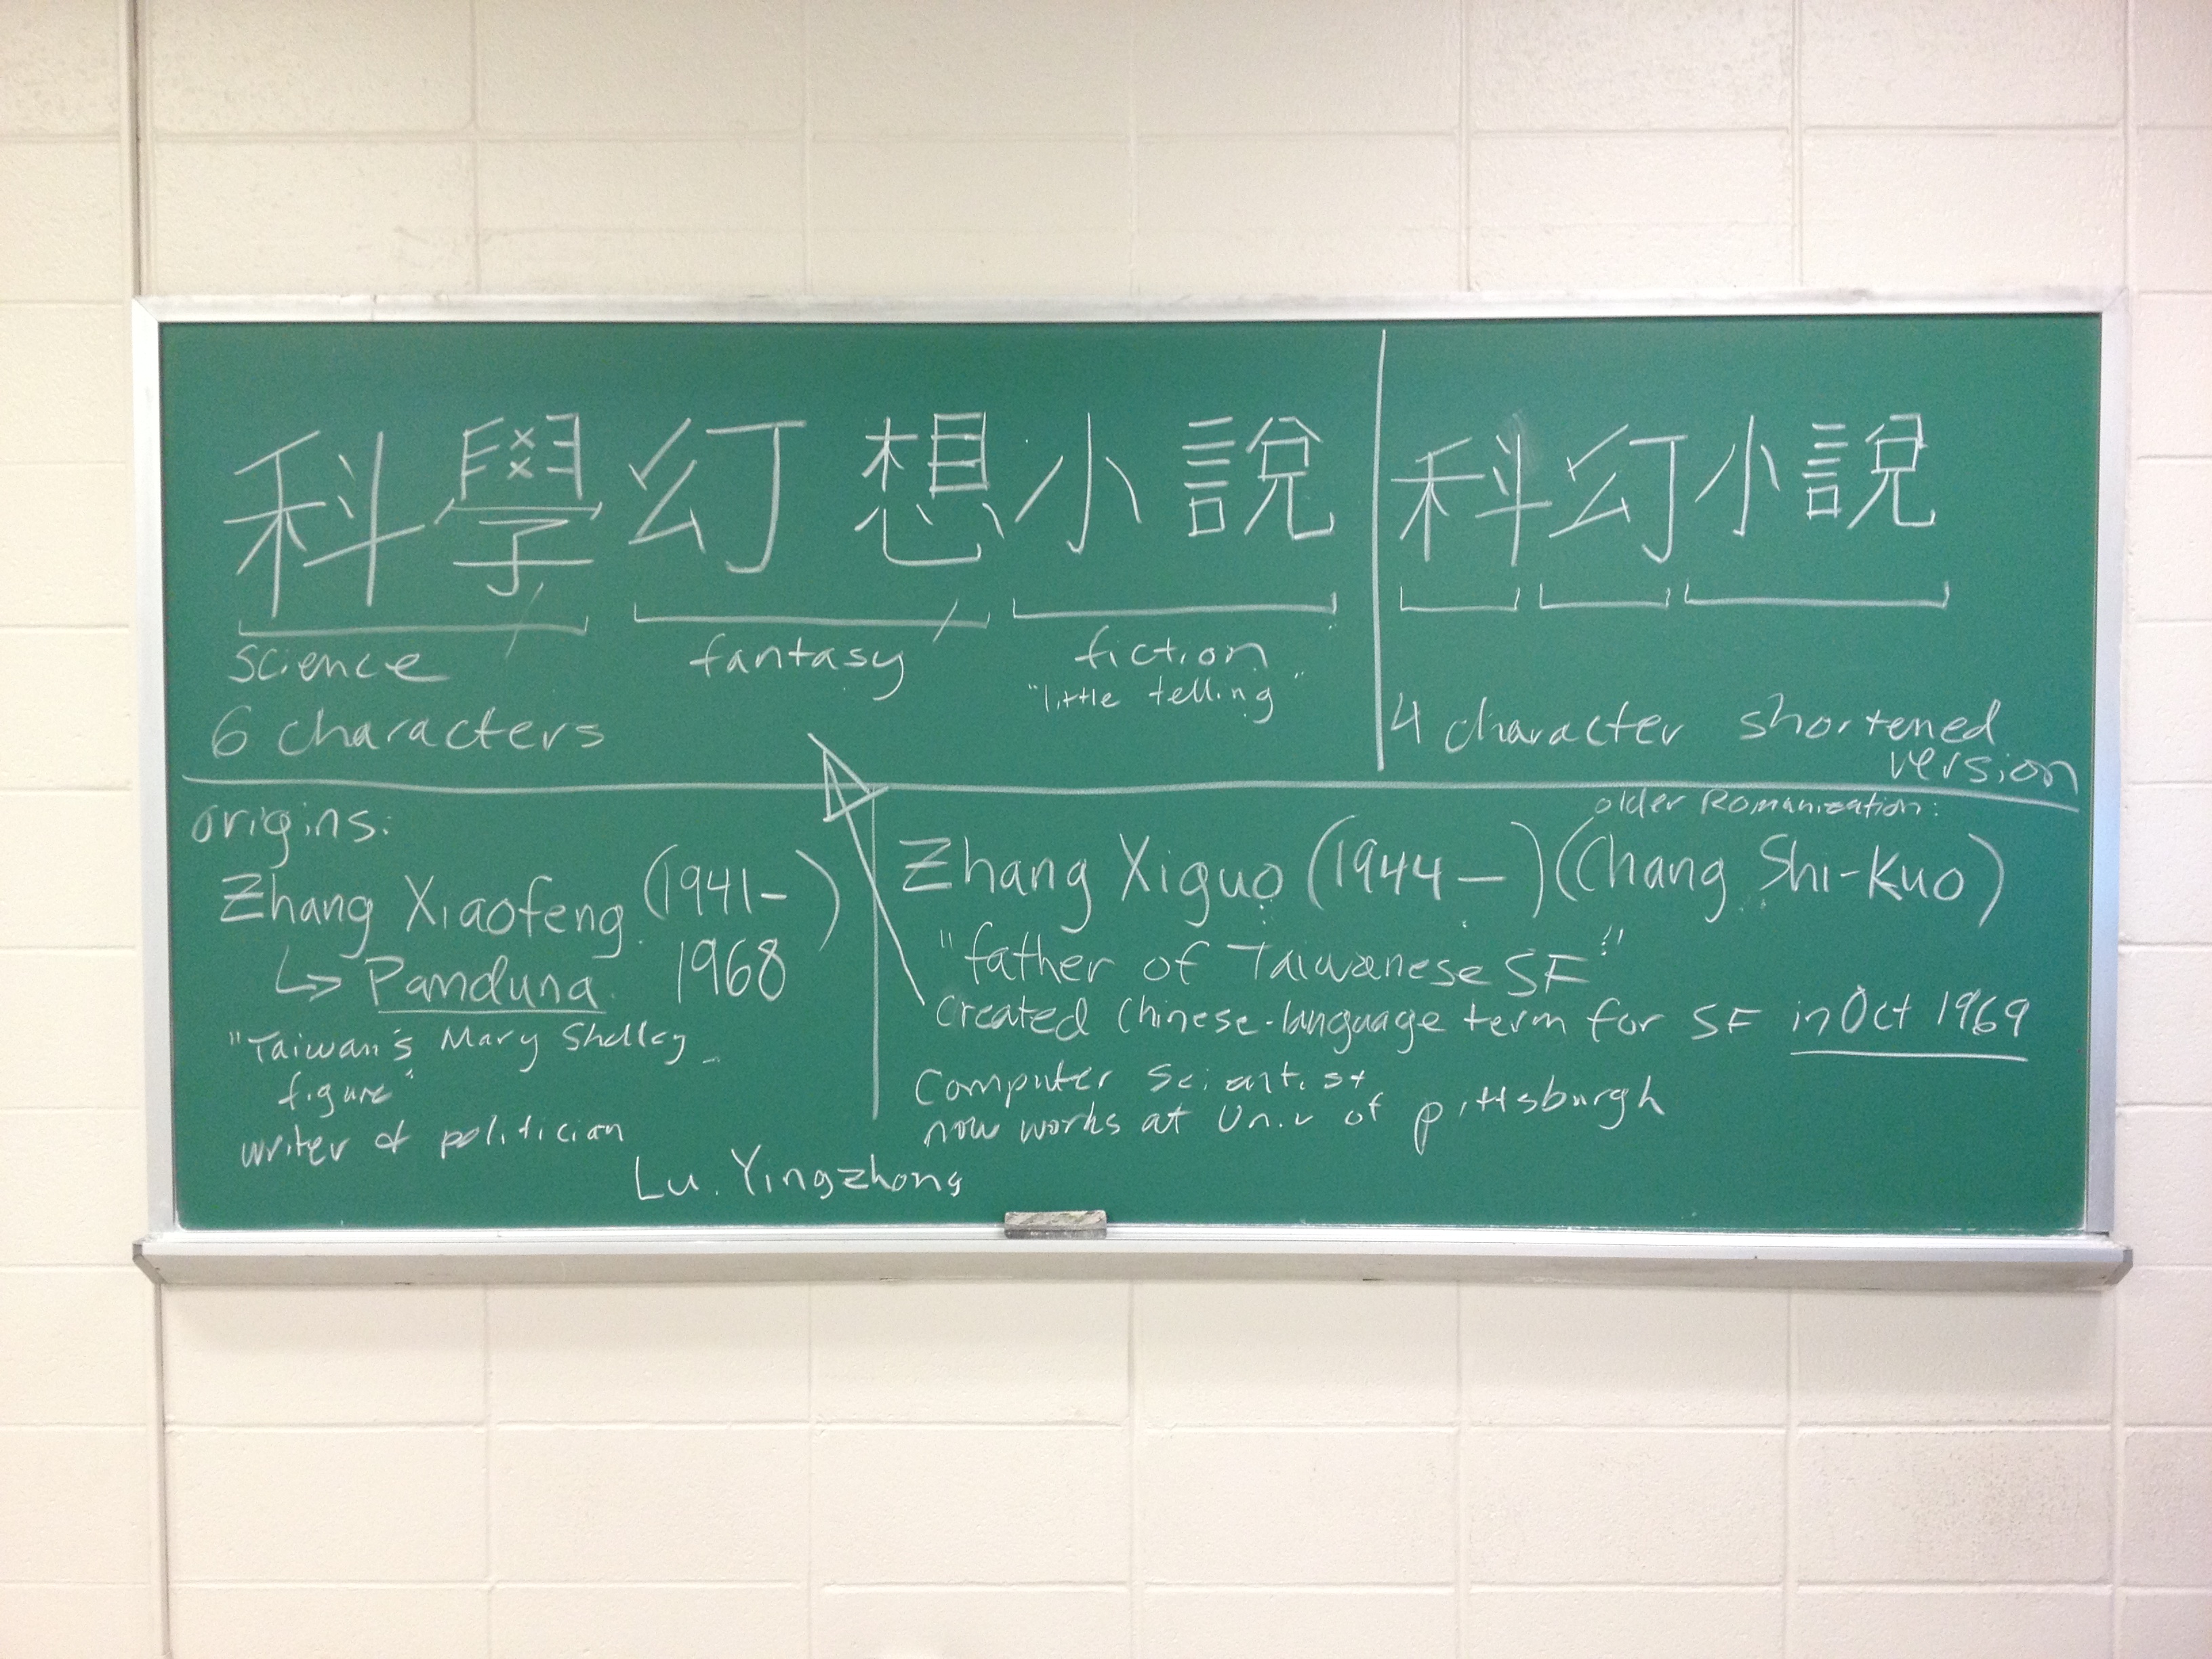 科學幻想小說
science
fantasy
fiction
"little telling"
6 characters
科幻小說
4 character shortened
version
origins:
Zhang Xiaofeng (1941- )
↳ Panduna 1968
"Taiwan's Mary Shelley
figure"
writer & politician
Lu Yingzhong
older Romanization:
Zhang Xiguo (1944 — ) (Chang Shi-Kuo)
"father of Taiwanese SF"
Created Chinese-language term for SF in Oct 1969
Computer Scientist
now works at Univ of pittsburgh